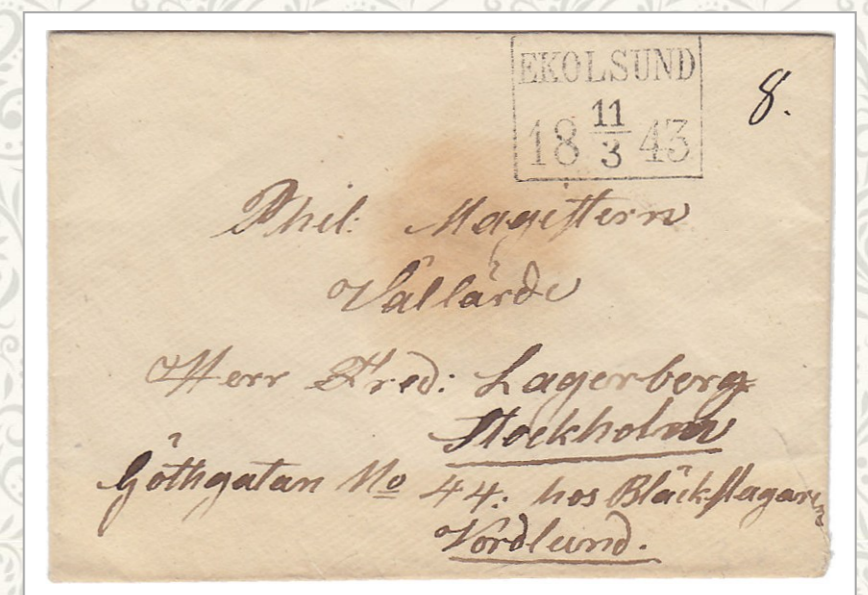 EKOLSUND
18 11/3 43
8.
Phil: Magistern
Vällärde
Herr Fred: Lagerberg
Stockholm
Göthgatan No 44: hos Bläckslagaren
Nordlund.